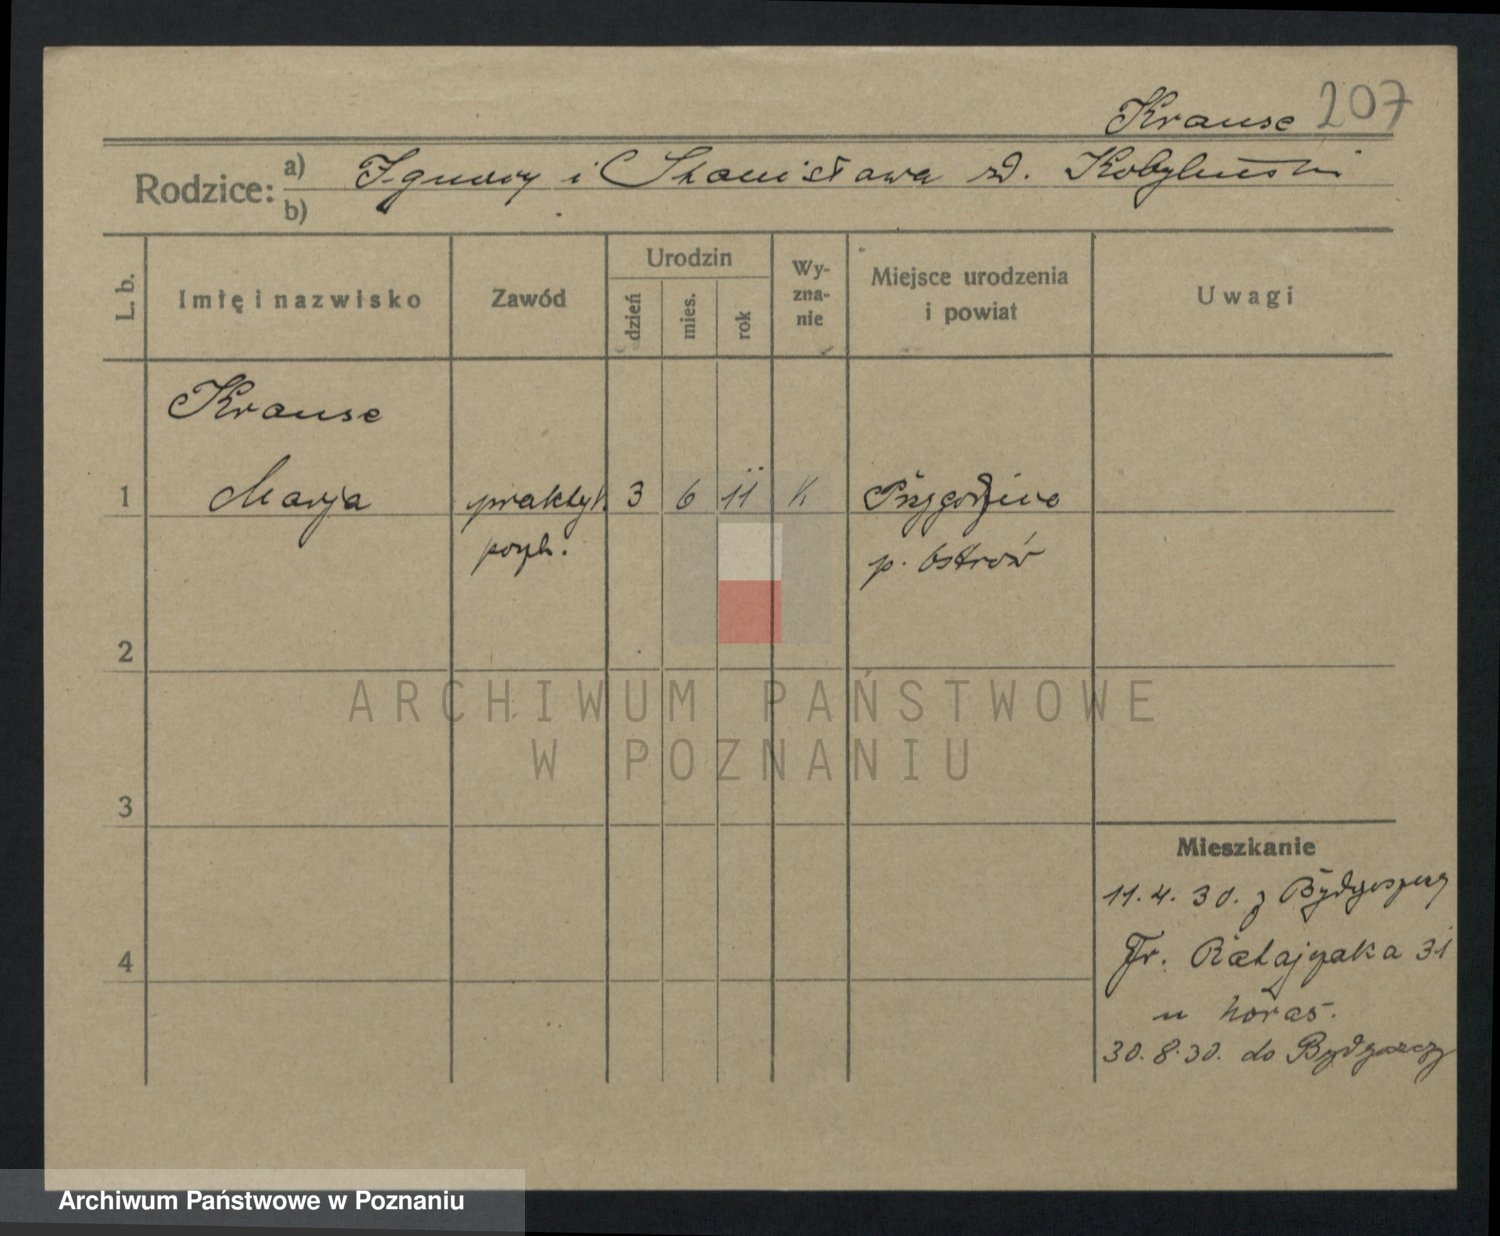 Krause 207
Rodzice: a) Ignacy i Stanisława z d. Kobylińskı
b)
L. b.
Imię i nazwisko
Zawód
Urodzin
dzień
mies.
rok
Wy-
zna-
nie
Miejsce urodzenia
i powiat
Uwagi
Krause
1 Marja praktyk. 3 6 11 k Przygodzice
p. Ostrów
2
ARCHIWUM PAŃSTWOWE
W POZNANIU
3
Mieszkanie
11.4.30. z Bydgoszczy
4 Fr. Ratajczaka 31
u
30.8.30. do Bydgoszczy
Archiwum Państwowe w Poznaniu